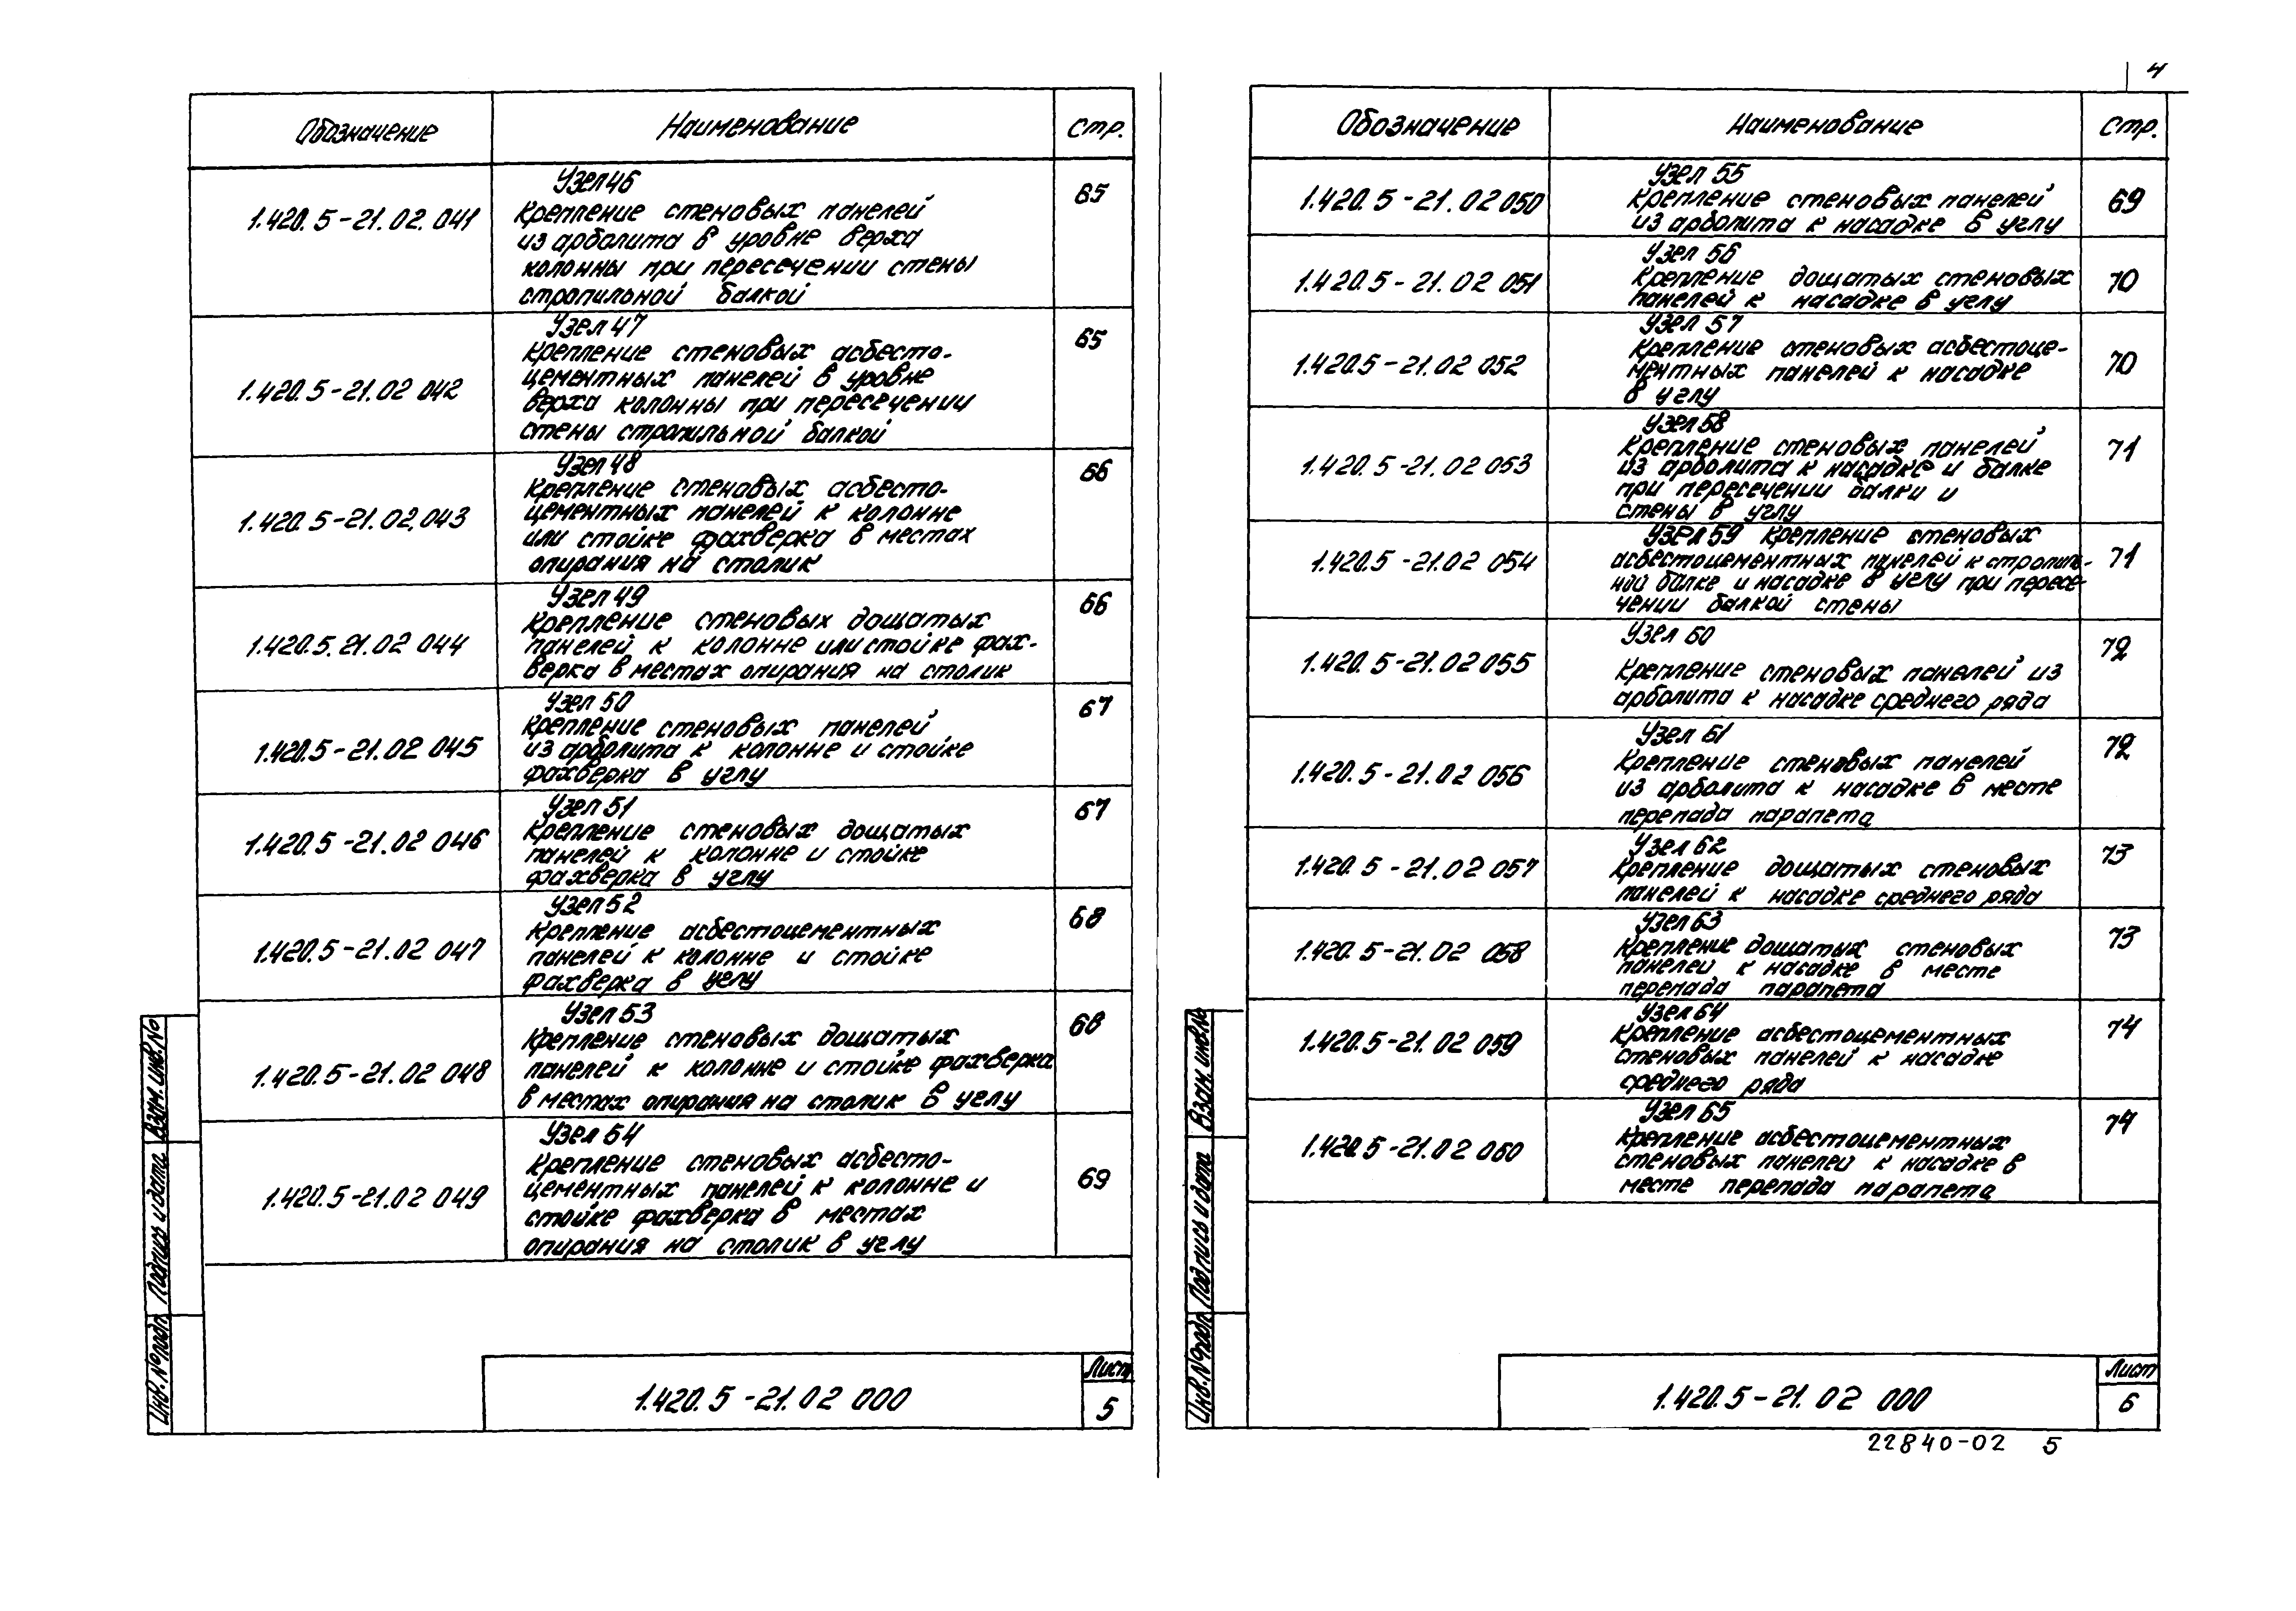 4
Обозначение Наименование Стр.
1.420.5-21.02.041 Узел 46 65
Крепление стеновых панелей
из арболита в уровне верха
колонны при пересечении стены
стропильной балкой
1.420.5-21.02 042 Узел 47 65
Крепление стеновых асбесто-
цементных панелей в уровне
верха колонны при пересечении
стены стропильной балкой
1.420.5-21.02.043 Узел 48 66
Крепление стеновых асбесто-
цементных панелей к колонне
или стойке фахверка в местах
опирания на столик
1.420.5.21.02 044 Узел 49 66
Крепление стеновых дощатых
панелей к колонне или стойке фах-
верка в местах опирания на столик
1.420.5-21.02 045 Узел 50 67
Крепление стеновых панелей
из арболита к колонне и стойке
фахверка в углу
1.420.5-21.02 046 Узел 51 67
Крепление стеновых дощатых
панелей к колонне и стойке
фахверка в углу
1.420.5-21.02 047 Узел 52 68
Крепление асбестоцементных
панелей к колонне и стойке
фахверка в углу
1.420.5-21.02 048 Узел 53 68
Крепление стеновых дощатых
панелей к колонне и стойке фахверка
в местах опирания на столик в углу
1.420.5-21.02 049 Узел 54 69
Крепление стеновых асбесто-
цементных панелей к колонне и
стойке фахверка в местах
опирания на столик в углу
Взам. инв. №
Подпись и дата
Инв. № подл.
1.420.5-21.02 000
Лист
5
Обозначение Наименование Стр.
1.420.5-21.02 050 Узел 55 69
Крепление стеновых панелей
из арболита к насадке в углу
1.420.5-21.02 051 Узел 56 70
Крепление дощатых стеновых
панелей к насадке в углу
1.420.5-21.02 052 Узел 57 70
Крепление стеновых асбестоце-
ментных панелей к насадке
в углу
1.420.5-21.02 053 Узел 58 71
Крепление стеновых панелей
из арболита к насадке и балке
при пересечении балки и
стены в углу
1.420.5-21.02 054 Узел 59 Крепление стеновых 71
асбестоцементных панелей к стропиль-
ной балке и насадке в углу при пересе-
чении балкой стены
1.420.5-21.02 055 Узел 60 72
Крепление стеновых панелей из
арболита к насадке среднего ряда
1.420.5-21.02 056 Узел 61 72
Крепление стеновых панелей
из арболита к насадке в месте
перепада парапета
1.420.5-21.02 057 Узел 62 73
Крепление дощатых стеновых
панелей к насадке среднего ряда
1.420.5-21.02 058 Узел 63 73
Крепление дощатых стеновых
панелей к насадке в месте
перепада парапета
1.420.5-21.02 059 Узел 64 74
Крепление асбестоцементных
стеновых панелей к насадке
среднего ряда
1.420.5-21.02 060 Узел 65 74
Крепление асбестоцементных
стеновых панелей к насадке в
месте перепада парапета
Взам. инв. №
Подпись и дата
Инв. № подл.
1.420.5-21.02 000
Лист
6
22840-02 5